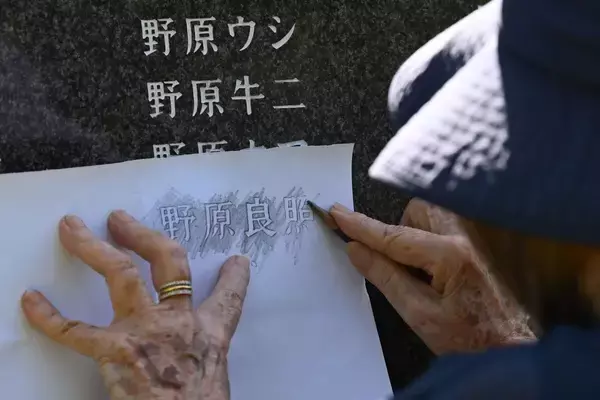 野原ウシ
野原牛二
野原
野原良